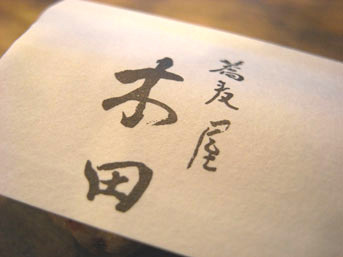 蕎麦屋
木田